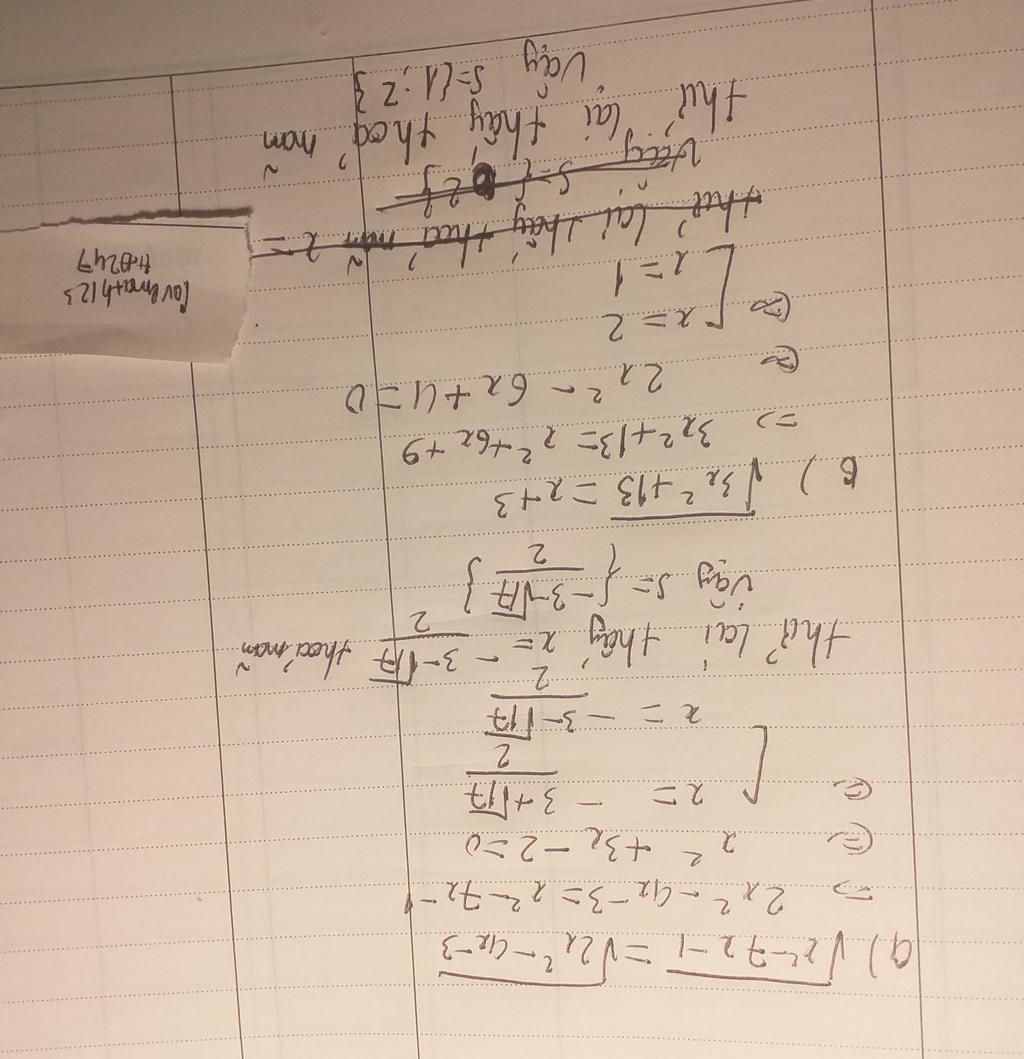 a) √x²-7x-1 = √2x²-4x-3
=> 2x²-4x-3 = x²-7x-1
<=> x² +3x -2=0
<=> [ x = -3+√17/2
x = -3-√17/2
thử lại thấy x = -3-√17/2 thoả mãn
Vậy S= {-3-√17/2}
b) √3x²+13 = x+3
=> 3x²+13= x²+6x+9
<=> 2x²-6x+4=0
<=> [ x=2
x=1
thử lại thấy thoả mãn 2=
Vậy S={ 2}
thử lại thấy thoả mãn
Vậy S={1;2}
lovemath123
HD247